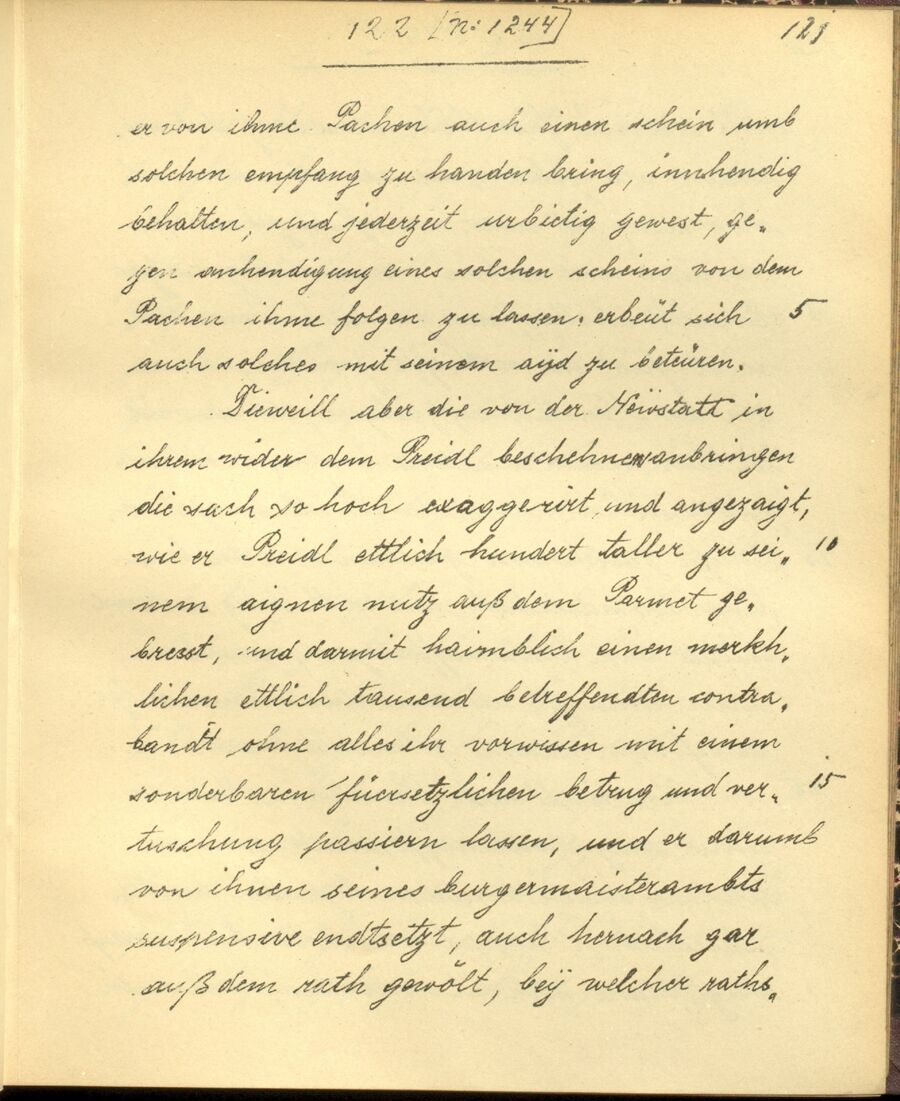 122 [N: 1244]
121
er von ihme Pachen auch einen schein umb
solchen empfang zu handen bring, innhendig
behalten, und jederzeit urbietig gewest, ge„
gen anhendigung eines solchen scheins von dem
Pachen ihme folgen zu lassen. erbeüt sich 5
auch solches mit seinem aÿd zu beteüren.
Dieweill aber die von der Neüstatt in
ihrem wider dem Preidl beschehnen anbringen
die sach so hoch exaggerirt, und angezaigt,
wie er Preidl ettlich hundert taller zu sei„ 10
nem aignen nutz auß dem Parmet ge„
bresst, und darmit haimblich einen merkh„
lichen ettlich tausend betreffendten contra„
bandt ohne alles ihr vorwissen mit einem
sonderbaren fürsetzlichen betrug und ver„ 15
tuschung passiern lassen, und er darumb
von ihnen seines burgermaisterambts
suspensive endtsetzt, auch hernach gar
auß dem rath gewölt, beÿ welcher raths„